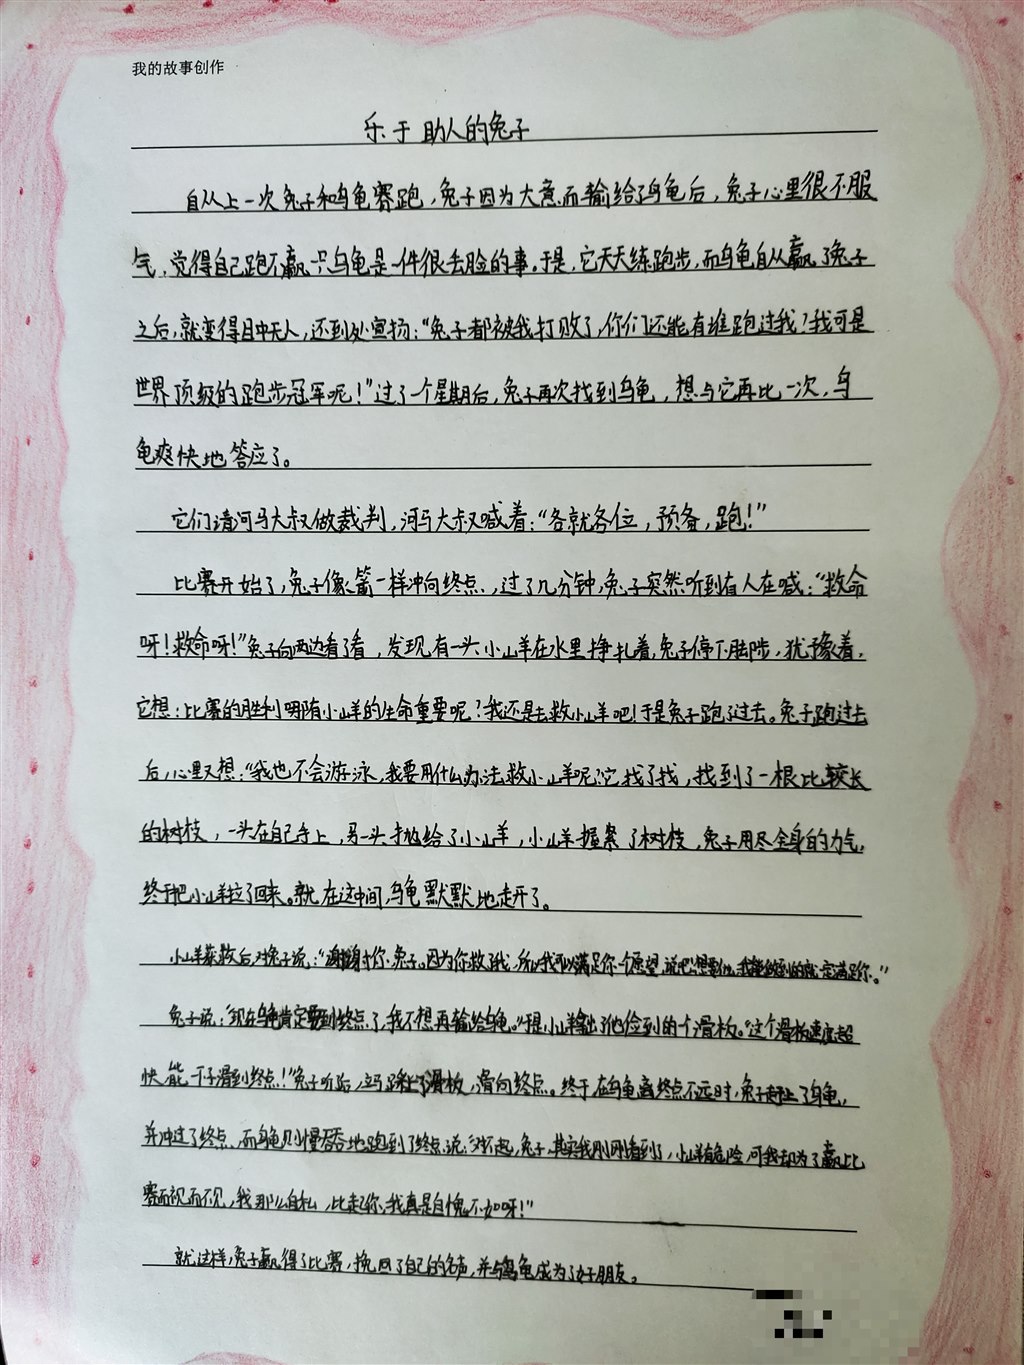 我的故事创作
乐于助人的兔子
自从上一次兔子和乌龟赛跑,兔子因为大意而输给了乌龟后,兔子心里很不服
气,觉得自己跑不赢一只乌龟是一件很丢脸的事。于是,它天天练跑步,而乌龟自从赢了兔子
之后,就变得目中无人,还到处宣扬:“兔子都被我打败了,你们还能有谁跑过我?我可是
世界顶级的跑步冠军呢!”过了一个星期后,兔子再次找到乌龟,想与它再比一次,乌
龟爽快地答应了。
它们请河马大叔做裁判,河马大叔喊着:“各就各位,预备,跑!”
比赛开始了,兔子像箭一样冲向终点,过了几分钟,兔子突然听到有人在喊:“救命
呀!救命呀!”兔子向两边看了看,发现有一头小山羊在水里挣扎着,兔子停下脚步,犹豫着,
它想:比赛的胜利哪有小山羊的生命重要呢?我还是去救小山羊吧!于是兔子跑了过去。兔子跑过去
后,心里又想:“我也不会游泳,我要用什么办法救小山羊呢?”它找了找,找到了一根比较长
的树枝,一头在自己手上,另一头抛给了小山羊,小山羊握紧了树枝,兔子用尽全身的力气,
终于把小山羊拉了回来。就在这中间,乌龟默默地走开了。
小山羊获救后,对兔子说:“谢谢你,兔子。因为你救了我,所以我可以满足你一个愿望,说吧!想要什么,我能做到的就一定满足你。”
兔子说:“现在乌龟肯定要到终点了,我不想再输给乌龟。”于是小山羊拿出了他捡到的一个滑板。“这个滑板速度超
快,能一下子滑到终点!”兔子听后,立马踩上了滑板,滑向终点。终于在乌龟离终点不远时,兔子赶上了乌龟,
并冲过了终点,而乌龟则慢吞吞地跑到了终点说:“对不起,兔子,其实我刚刚看到了,小山羊有危险,可我却为了赢比
赛而视而不见,我那么自私,比起你,我真是自愧不如呀!”
就这样,兔子赢得了比赛,挽回了自己的名声,并与乌龟成为了好朋友。